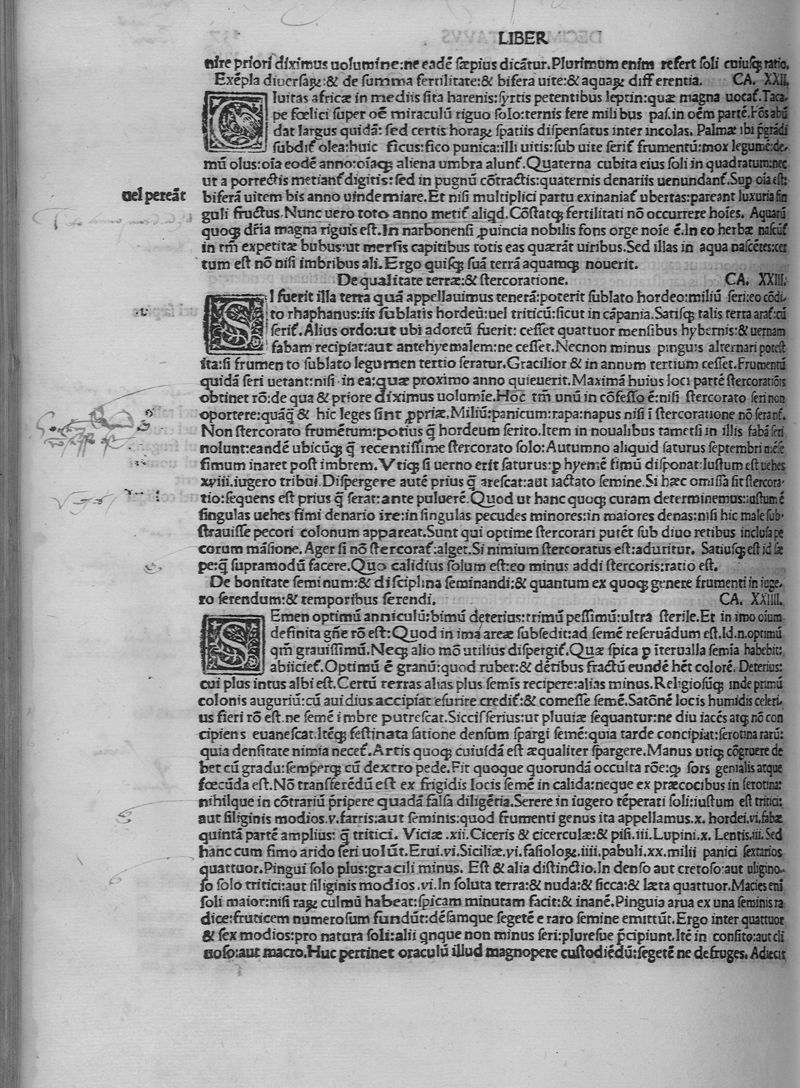 LIBER
nire priori diximus uolumine:ne eadē ſæpius dicātur.Plurimum enim refert ſoli cuiuſq; ratio.
Exēpla diuerſaꝝ:& de ſumma fertilitate:& bifera uite:& aquaꝝ differentia. CA. XXII.
CIuitas africæ in mediis ſita harenis:ſyrtis petentibus leptin:quæ magna uocaſ.Taca-
pe fœlici ſuper oē miraculū riguo ſolo:ternis fere milibus paſ.in oēm partē.Fōs abū
dat largus quidā: ſed certis horaꝝ ſpatiis diſpenſatus inter incolas. Palmæ ibi p̄grādi
ſubdiſ olea:huic ficus:fico punica:illi uitis:ſub uite ſeriſ frumentū:mox legumē:de-
mū olus:oīa eodē anno:oīaq; aliena umbra alunſ.Quaterna cubita eius ſoli in quadratum:nec
ut a porrectis metianſ digitis:ſed in pugnū cōtractis:quaternis denariis uenundanſ.Sup oīa eſt:
uel pereāt
biferā uitem bis anno uindemiare.Et niſi multiplici partu exinaniaſ ubertas:pareant luxuria ſin
guli fructus.Nunc uero toto anno metiſ aliqd.Cōſtatq; fertilitati nō occurrere hoīes. Aquarū
quoq; dr̄ia magna riguis eſt.In narbonenſi ꝓuincia nobilis fons orge noīe ē.In eo herbæ naſcūſ
in tm̄ expetitæ bubus:ut merſis capitibus totis eas quærāt uiribus.Sed illas in aqua naſcētes:cer
tum eſt nō niſi imbribus ali.Ergo quiſq; ſuā terrā aquamq; nouerit.
De qualitate terræ:& ſtercoratione. CA. XXIII.
SI fuerit illa terra quā appellauimus tenerā:poterit ſublato hordeo:miliū ſeri:eo cōdi-
to rhaphanus:iis ſublatis hordeū:uel triticū:ſicut in cāpania.Satiſq; talis terra araſ:cū
ſeriſ.Alius ordo:ut ubi adoreū fuerit: ceſſet quattuor menſibus hybernis:& uernam
fabam recipiat:aut antehyemalem:ne ceſſet.Necnon minus pinguis alternari poteſt
ita:ſi frumento ſublato legumen tertio ſeratur.Gracilior & in annum tertium ceſſet.Frumentū
quidā ſeri uetant:niſi in ea:quæ proximo anno quieuerit.Maximā huius loci partē ſtercoratiōis
obtinet rō:de qua & priore diximus uolumīe.Hoc tm̄ unū in cōfeſſo ē:niſi ſtercorato ſeri non
oportere:quāq̄ & hic leges ſint ꝓpriæ.Miliū:panicum:rapa:napus niſi ī ſtercoratione nō ſeranſ.
Non ſtercorato frumētum:potius q̄ hordeum ſerito.Item in noualibus tametſi in illis fabā ſeri
nolunt:eandē ubicūq; q̄ recentiſſime ſtercorato ſolo:Autumno aliquid ſaturus ſeptembri mēſe
fimum inaret poſt imbrem.Vtiq; ſi uerno erit ſaturus:ꝑ hyemē fimū diſponat.Iuſtum eſt uehes
xviii.iugero tribui.Diſpergere autē prius q̄ areſcat:aut iactato ſemine.Si hæc omiſſa ſit ſtercora-
tio:ſequens eſt prius q̄ ſerat:ante puluerē.Quod ut hanc quoq; curam determinemus:iuſtum ē
ſingulas uehes fimi denario ire:in ſingulas pecudes minores:in maiores denas:niſi hic male ſub-
ſtrauiſſe pecori colonum appareat.Sunt qui optime ſtercorari putēt ſub diuo retibus incluſa pe
corum māſione.Ager ſi nō ſtercoraſ:alget.Si nimium ſtercoratus eſt:aduritur. Satiuſq; eſt id ſæ
pe:q̄ ſupramodū facere.Quo calidius ſolum eſt:eo minus addi ſtercoris:ratio eſt.
De bonitate ſeminum:& diſciplina ſeminandi:& quantum ex quoq; genere frumenti in iuge,
ro ſerendum:& temporibus ſerendi. CA. XXIIII.
SEmen optimū anniculū:bimū deterius:trimū peſſimū:ultra ſterile.Et in imo oīum
definita gn̄e rō eſt:Quod in ima areæ ſubſedit:ad ſemē reſeruādum eſt.Id.n.optimū
qm̄ grauiſſimū.Neq; alio mō utilius diſpergiſ.Quæ ſpica ꝑ īterualla ſemīa habebit:
abiicieſ.Optimū ē granū:quod rubet:& dētibus fractū eundē hēt colorē. Deterius:
cui plus intus albi eſt.Certū terras alias plus ſemīs recipere:alias minus.Religioſūq; inde primū
colonis auguriū:cū auidius accipiat eſurire crediſ:& comeſſe ſemē.Satōnē locis humidis celeri-
us fieri rō eſt.ne ſemē imbre putreſcat.Siccīſ ſerius:ut pluuiæ ſequantur:ne diu iacēs atq; nō con
cipiens euaneſcat.Itēq; feſtinata ſatione denſum ſpargi ſemē:quia tarde concipiat:ſerotina rarū:
quia denſitate nimia neceſ.Artis quoq; cuiuſdā eſt æqualiter ſpargere.Manus utiq; cōgruere de
bet cū gradu:ſemperq; cū dextro pede.Fit quoque quorundā occulta rōe:ꝙ ſors genialis atque
fœcūda eſt.Nō tranſferēdū eſt ex frigidis locis ſemē in calida:neque ex præcocibus in ſerotina:
nihilque in cōtrariū p̄ripere quadā falſa diligētia.Serere in iugero tēperati ſoli:iuſtum eſt tritici:
aut ſiliginis modios.v.farris:aut ſeminis:quod frumenti genus ita appellamus.x. hordei.vi.fabæ
quintā partē amplius: q̄ tritici. Viciæ .xii.Ciceris & cicerculæ:& piſi.iii.Lupini.x. Lentis.iii.Sed
hanc cum fimo arido ſeri uolūt.Erui.vi.Siciliæ.vi.faſioloꝝ.iiii.pabuli.xx.milii panici ſextarios
quattuor.Pingui ſolo plus:gracili minus. Eſt & alia diſtinctio.In denſo aut cretoſo:aut uligino-
ſo ſolo tritici:aut ſiliginis modios .vi.In ſoluta terra:& nuda:& ſicca:& læta quattuor.Macies enī
ſoli maior:niſi raꝝ culmū habeat:ſpicam minutam facit:& inanē.Pinguia arua ex una ſeminis ra
dice:fruticem numeroſum fundūt:dēſamque ſegetē e raro ſemine emittūt.Ergo inter quattuor
& ſex modios:pro natura ſoli:alii qnque non minus ſeri:plureſue p̄cipiunt.Itē in conſito:aut cli
uoſo:aut macro.Huc pertinet oraculū illud magnopere cuſtodiēdū:ſegetē ne defruges. Adiecit